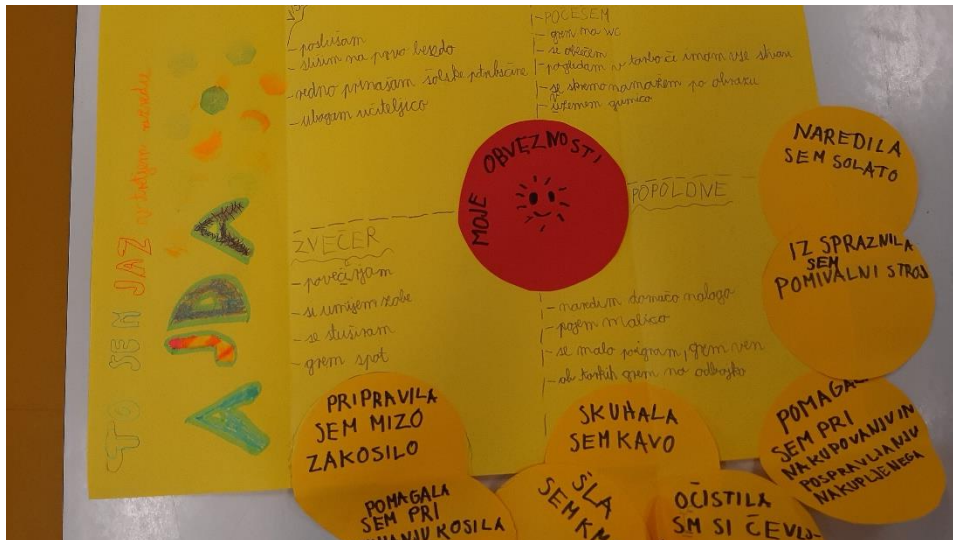 TO SEM JAZ
AJDA
- poslušam
- slišim na prvo besedo
- redno prinašam šolske potrebščine
- ubogam učiteljico
- POČEŠEM
- grem na WC
- se oblečem
- pogledam v torbo če imam vse stvari
- se skremo namažem po obrazu
- vzemem gumico
MOJE OBVEZNOSTI
ZVEČER
- povečerjam
- si umijem zobe
- se stuširam
- grem spat
POPOLDNE
- naredim domačo nalogo
- pojem malico
- se malo poigram, grem ven
- ob torkih grem na odbojko
NAREDILA
SEM SOLATO
IZ SPRAZNILA
SEM
POMIVALNI STROJ
POMAGALA
SEM PRI
NAKUPOVANJU IN
POSPRAVLJANJU
NAKUPLJENEGA
PRIPRAVILA
SEM MIZO
ZAKOSILO
SKUHALA
SEM KAVO
POMAGALA
SEM PRI
KOSILA
ŠLA
SEM K
OČISTILA
SM SI ČEVLJ